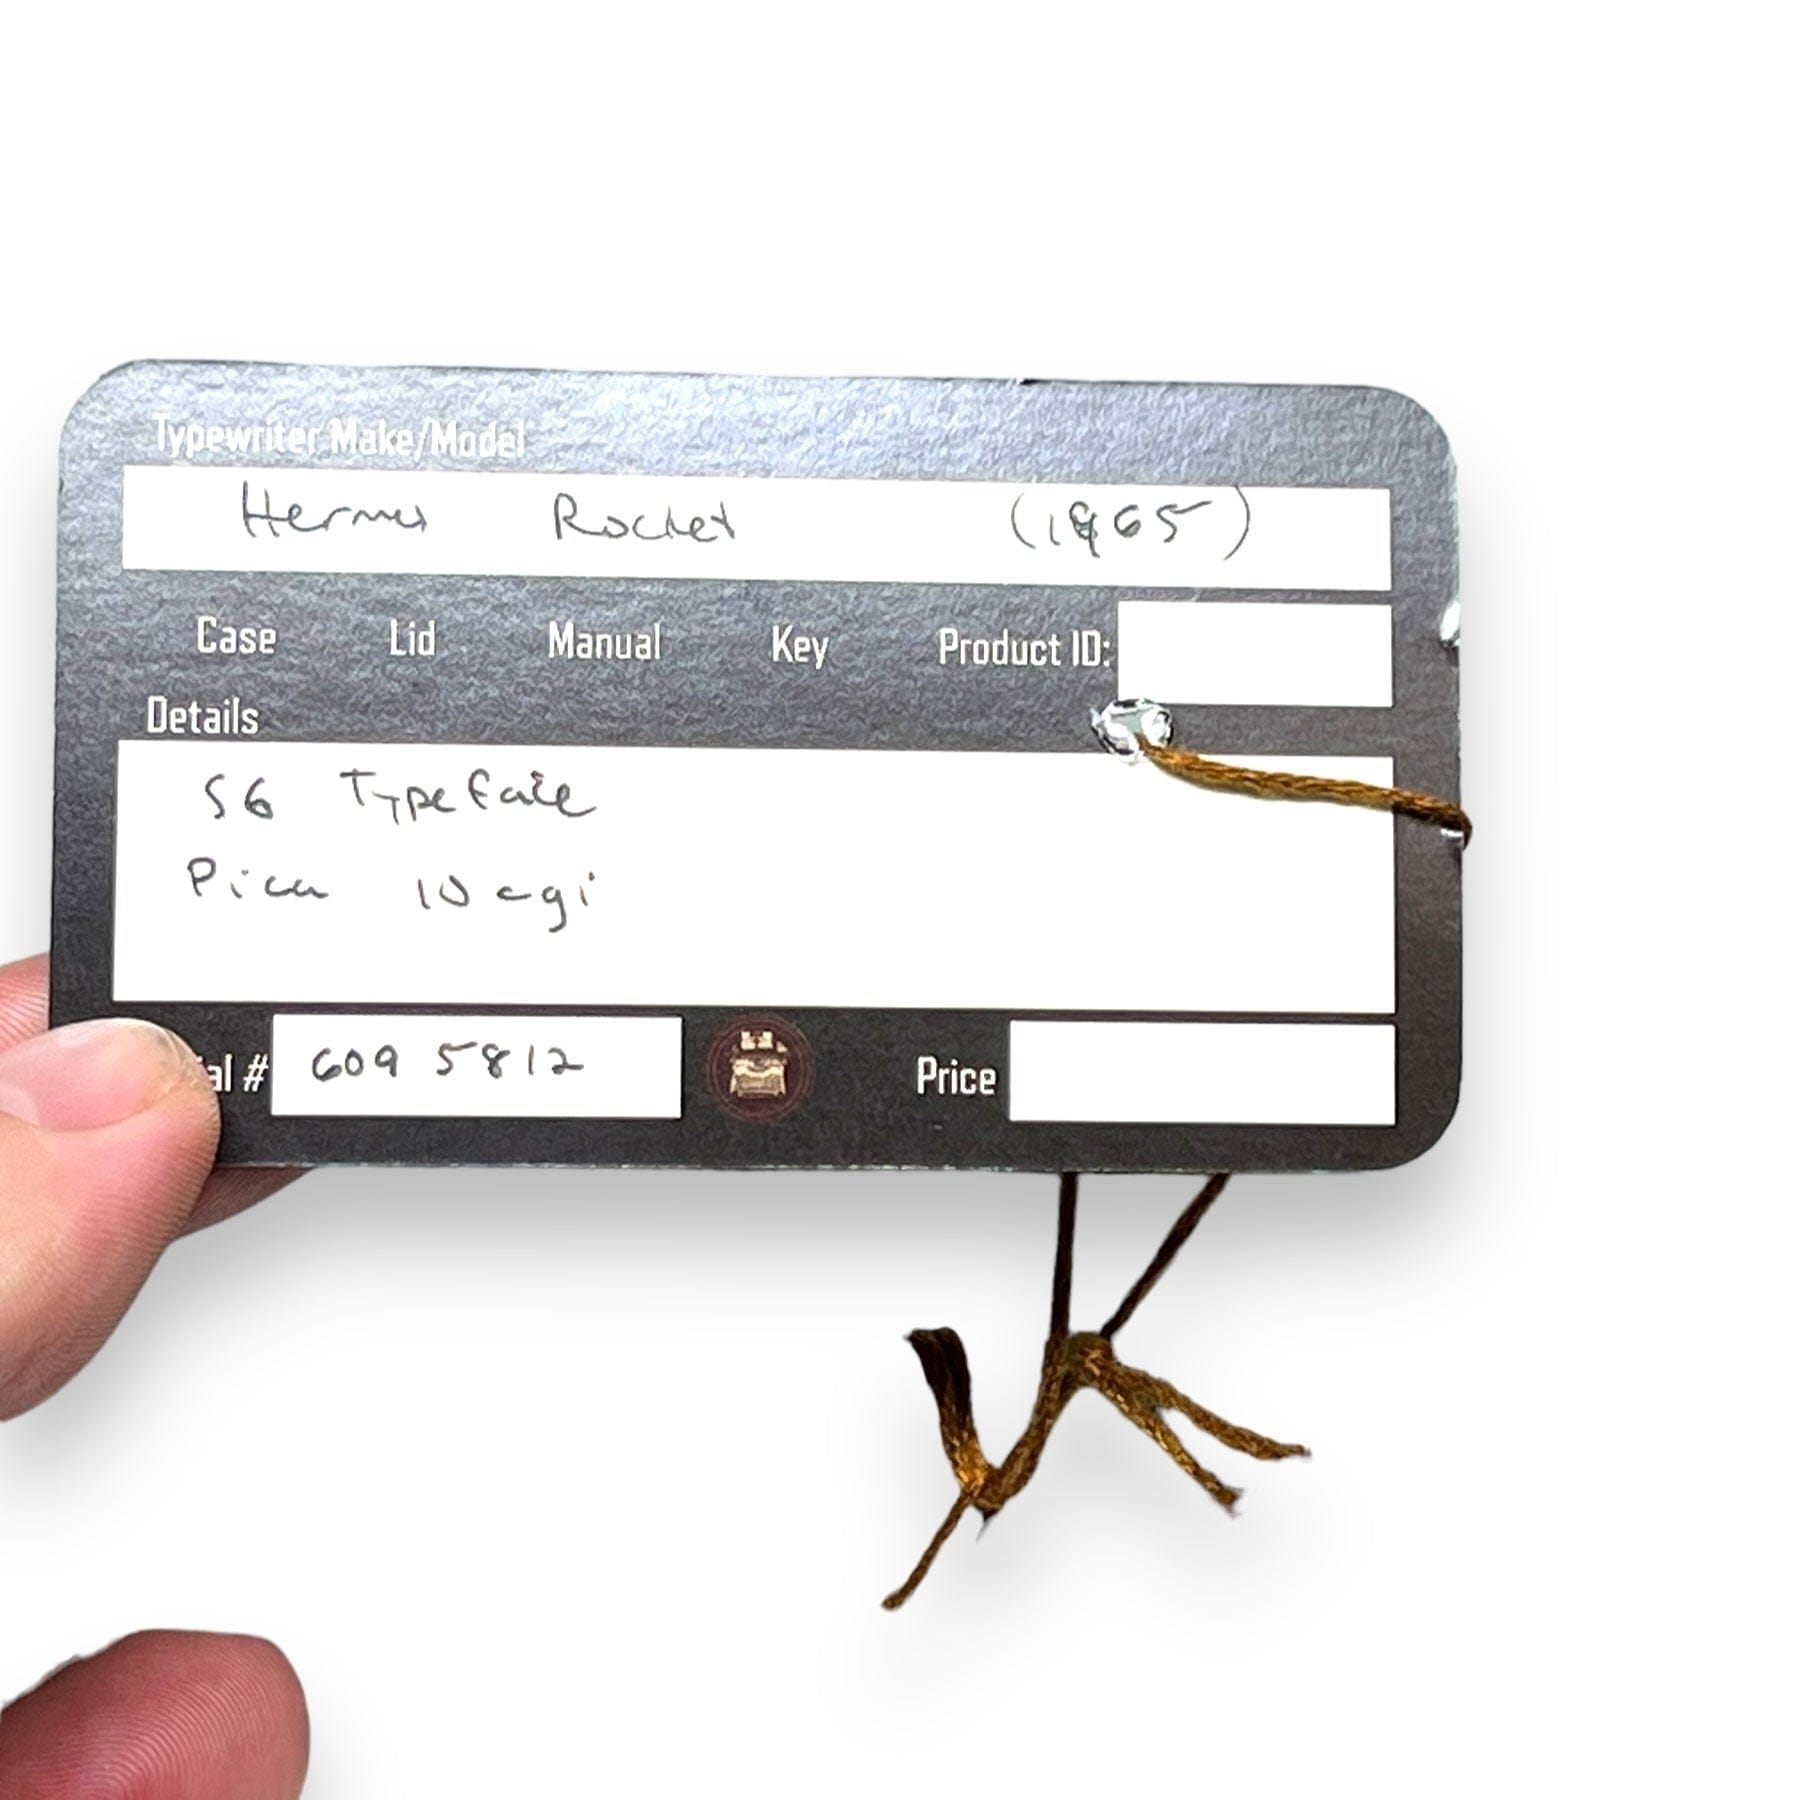 Typewriter Make/Model
Hermes Rocket (1965)
Case Lid Manual Key Product ID:
Details
S6 Typeface
Pica 10 cpi
ial # 609 5812 Price